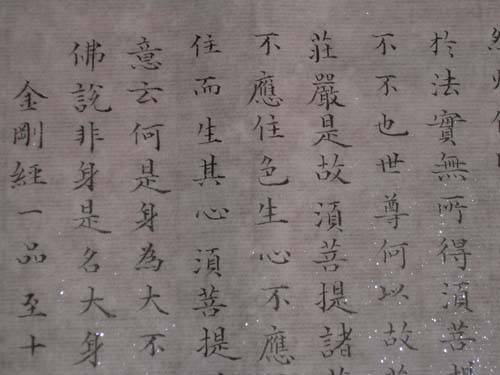 於法實無所得須菩提
不不也世尊何以故莊
莊嚴是故須菩提諸菩
不應住色生心不應
住而生其心須菩提
意云何是身為大不
佛說非身是名大身
金剛經一品至十